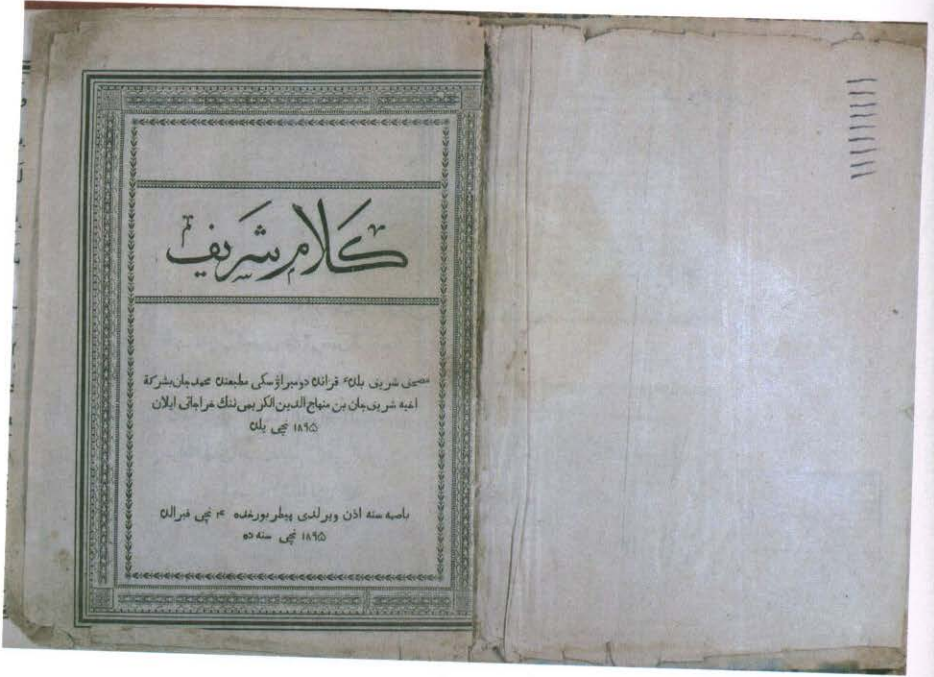 كلام شريف
مصحف شريف بلدۀ قزانده دومبراوسكى مطبعنده محمدجان بشركة
اخيه شريف جان بن منهاج الدين الكريمى ننك خراجاتى ايلان
۱۸۹۵ نچى يلده
باصمه سنه اذن ويرلدى پيطربورغده ۴ نچى فبرالده
۱۸۹۵ نچى سنه ده